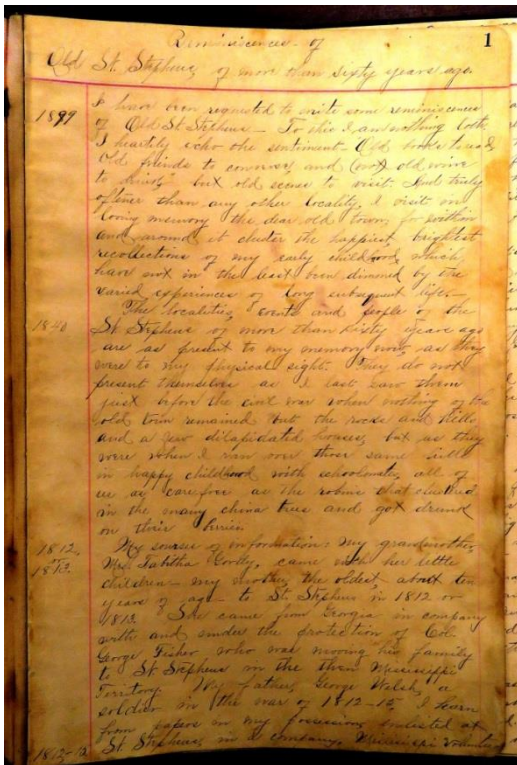 1
Reminiscences of
Old St. Stephens, of more than sixty years ago.
1899
I have been requested to write some reminiscences
of Old St Stephens — To this I am nothing loth,
I heartily echo the sentiment. Old books to read
Old friends to converse, and (not old wine
to drink) but old scenes to visit. And truly
oftener than any other locality, I visit in
loving memory the dear old town, for within
and around it cluster the happiest, brightest
recollections of my early childhood, which
have not in the least been dimmed by the
varied experiences of long subsequent life.—
The localities, events and people of the
1840
St Stephens of more than sixty years ago
are as present to my memory now, as they
were to my physical sight. They do not
present themselves as I last saw them
just before the civil war when nothing of the
old town remained but the rocks and hills
and a few dilapidated houses, but as they
were when I ran over those same hills
in happy childhood with schoolmates, all of
us as carefree as the robins that clustered
in the many china trees and got drunk
on their berries
1812,
or
1813
My sources of information: my grandmother,
Mrs. Tabitha, came with her little
children — my mother, the oldest, about ten
years of age — to St. Stephens in 1812 or
1813. She came from Georgia in company
with and under the protection of Col.
George Fisher who was moving his family
to St Stephens in the then Mississippi
Territory. My father, George Welsh, a
soldier in the war of 1812–15, I learn
from papers in my possession, enlisted at
St. Stephens, in a company, Mississippi